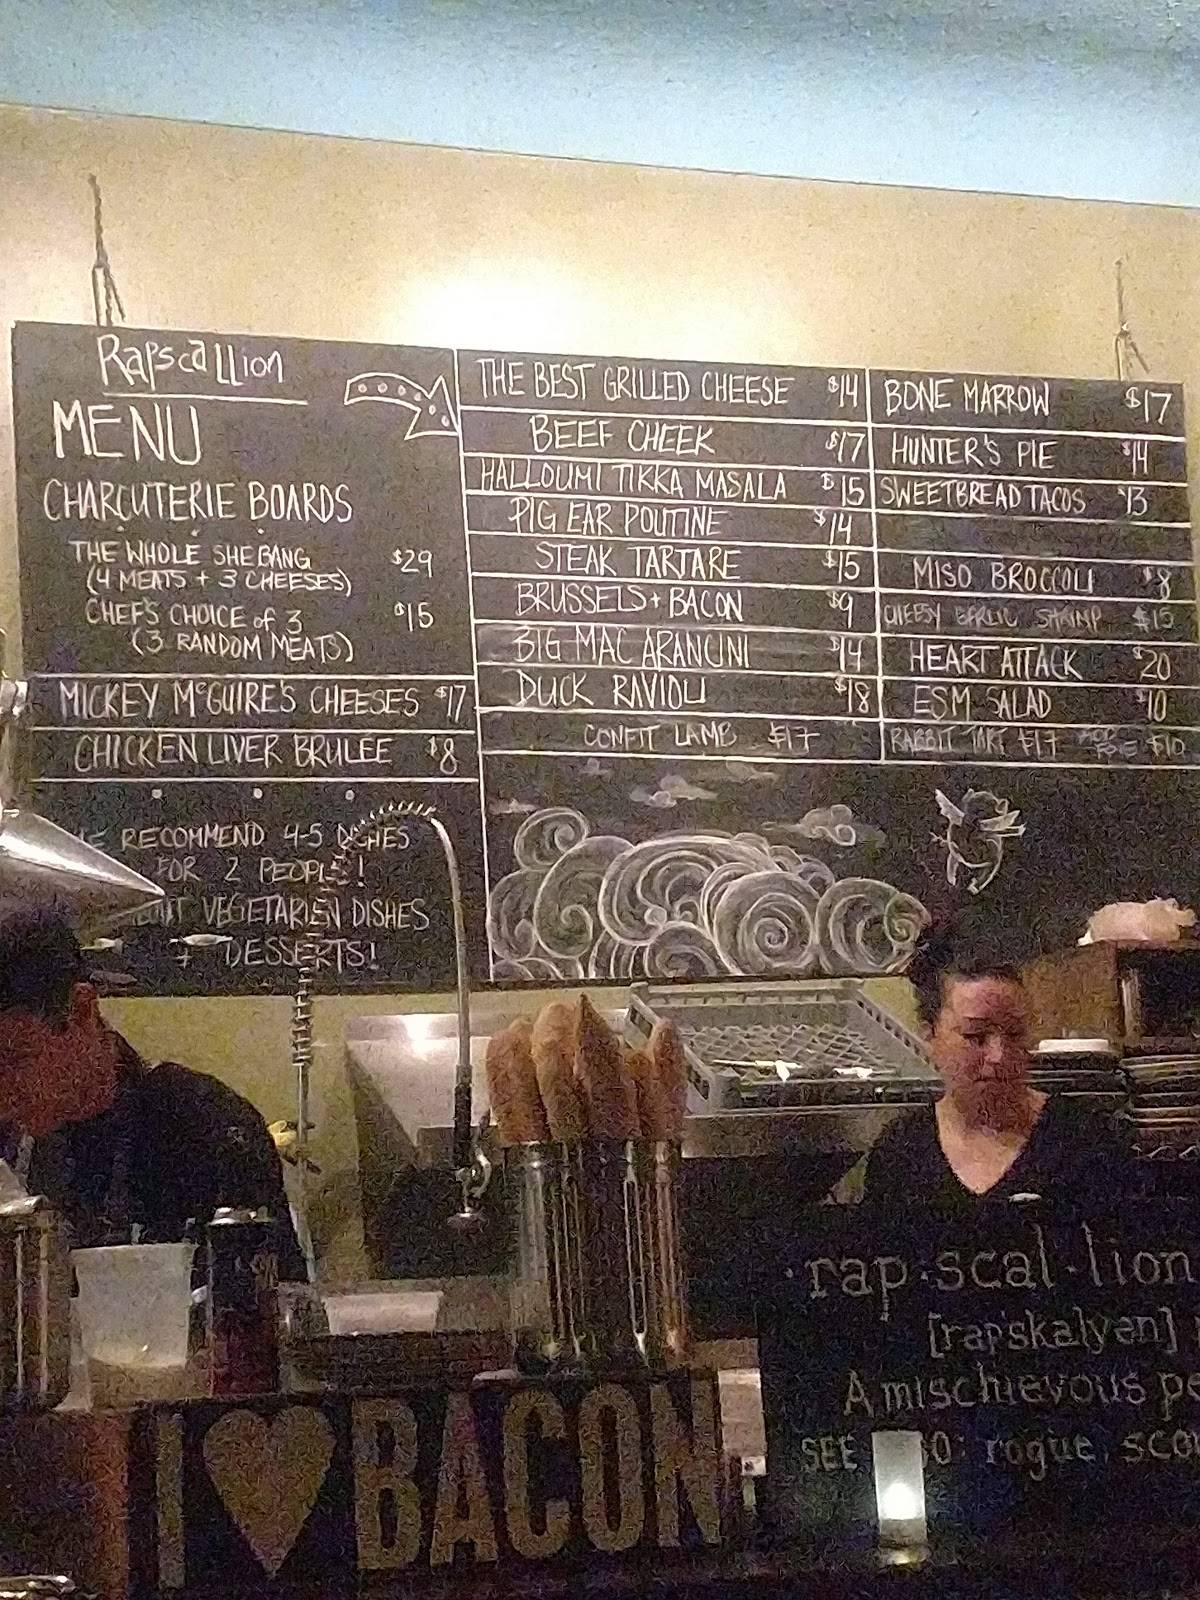 Rapscallion
MENU
CHARCUTERIE BOARDS
THE WHOLE SHEBANG $29
(4 MEATS + 3 CHEESES)
CHEF'S CHOICE of 3 $15
(3 RANDOM MEATS)
MICKEY McGUIRE'S CHEESES $17
CHICKEN LIVER BRULEE $8
RECOMMEND 4-5 DISHES
FOR 2 PEOPLE!
VEGETARIEN DISHES
+ DESSERTS!
THE BEST GRILLED CHEESE $14
BEEF CHEEK $17
HALLOUMI TIKKA MASALA $15
PIG EAR POUTINE $14
STEAK TARTARE $15
BRUSSELS + BACON $9
BIG MAC ARANCINI $14
DUCK RAVIOLI $18
CONFIT LAMB $17
BONE MARROW $17
HUNTER'S PIE $14
SWEETBREAD TACOS $13
MISO BROCCOLI $8
CHEESY GARLIC SHRIMP $15
HEART ATTACK $20
ESM SALAD $10
RABBIT TART $17 $10
·rap·scal·lion
[rap'skalyən]
A mischievous pe
SEE rogue, sco
I ♥ BACON